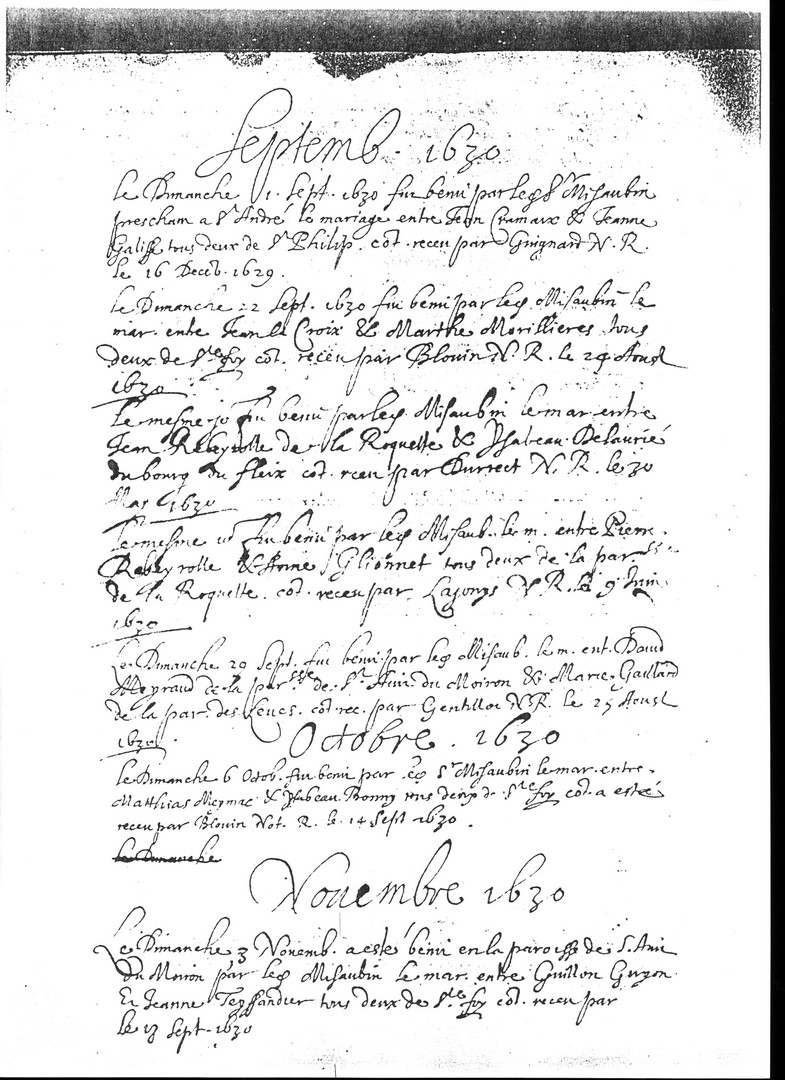 Septemb. 1630
Le Dimanche 1. Sept. 1630 fut beni par led Sr Misaubin
preschant a St André le mariage entre Jean & Jeanne
tous deux de St Philip. cōt. receu par Guignard N. R.
le 16 Decēb. 1629.
Le Dimanche 22 Sept. 1630 fut beni par led Misaubin le
mar. entre Jean la Croix & Marthe Morillieres tous
deux de Ste foy cōt. receu par Blouin N. R. le 24 Aoust
1630
Le mesme jo fut beni par led Misaubin le mar entre
Jean Rebeyrolle de la Roquette & Ysabeau Delaurié
du bourg du fleix cōt. receu par N. R. le 30
Mar 1630
Le mesme io fut beni par led Misaub. le m. entre Pierre
Rabeyrolle & Anne Glionnet tous deux de la par.
de la Roquette. cōt. receu par N. R. le 9 Juin
1630
Le Dimanche 29 Sept. fut beni par led Misaub. le m. ent. David
Meyraud de la par.sse de St Avit du Moiron & Marie Gaillard
de la par. des Leves. cōt rec. par Gentillot N. R. le 25 Aoust
1630
Octobre. 1630
Le Dimanche 6 Octob. fut beni par led Sr Misaubin le mar. entre
Matthias Meymac & Ysabeau Bonny tous deux de Ste foy cōt. a esté
receu par Blouin Not. R. le 14 Sept 1630.
le Dimanche
Novembre 1630
Le Dimanche 3 Novemb. a esté beni en la paroisse de S. Avit
du Moiron par led Misaubin le mar. entre Guillon Guyon
Et Jeanne Teyssandier tous deux de Ste foy cōt. receu par
le 13 Sept. 1630